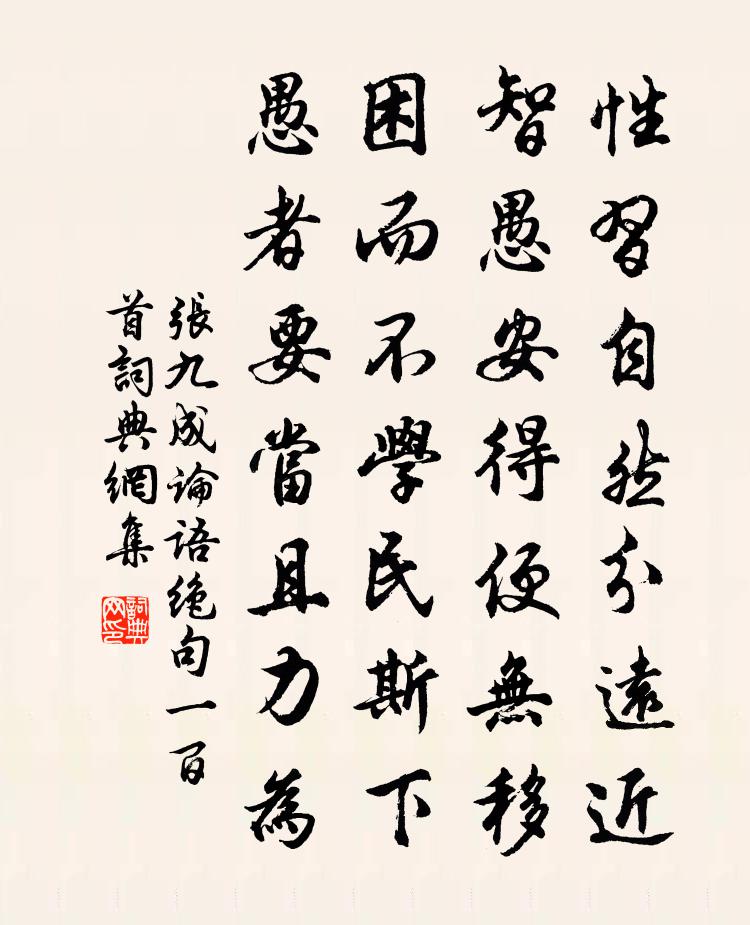 性習自然分遠近
智愚安得便無移
困而不學民斯下
愚者要當且力為
張九成論语絶句一百
首詞典網集
詞典网印